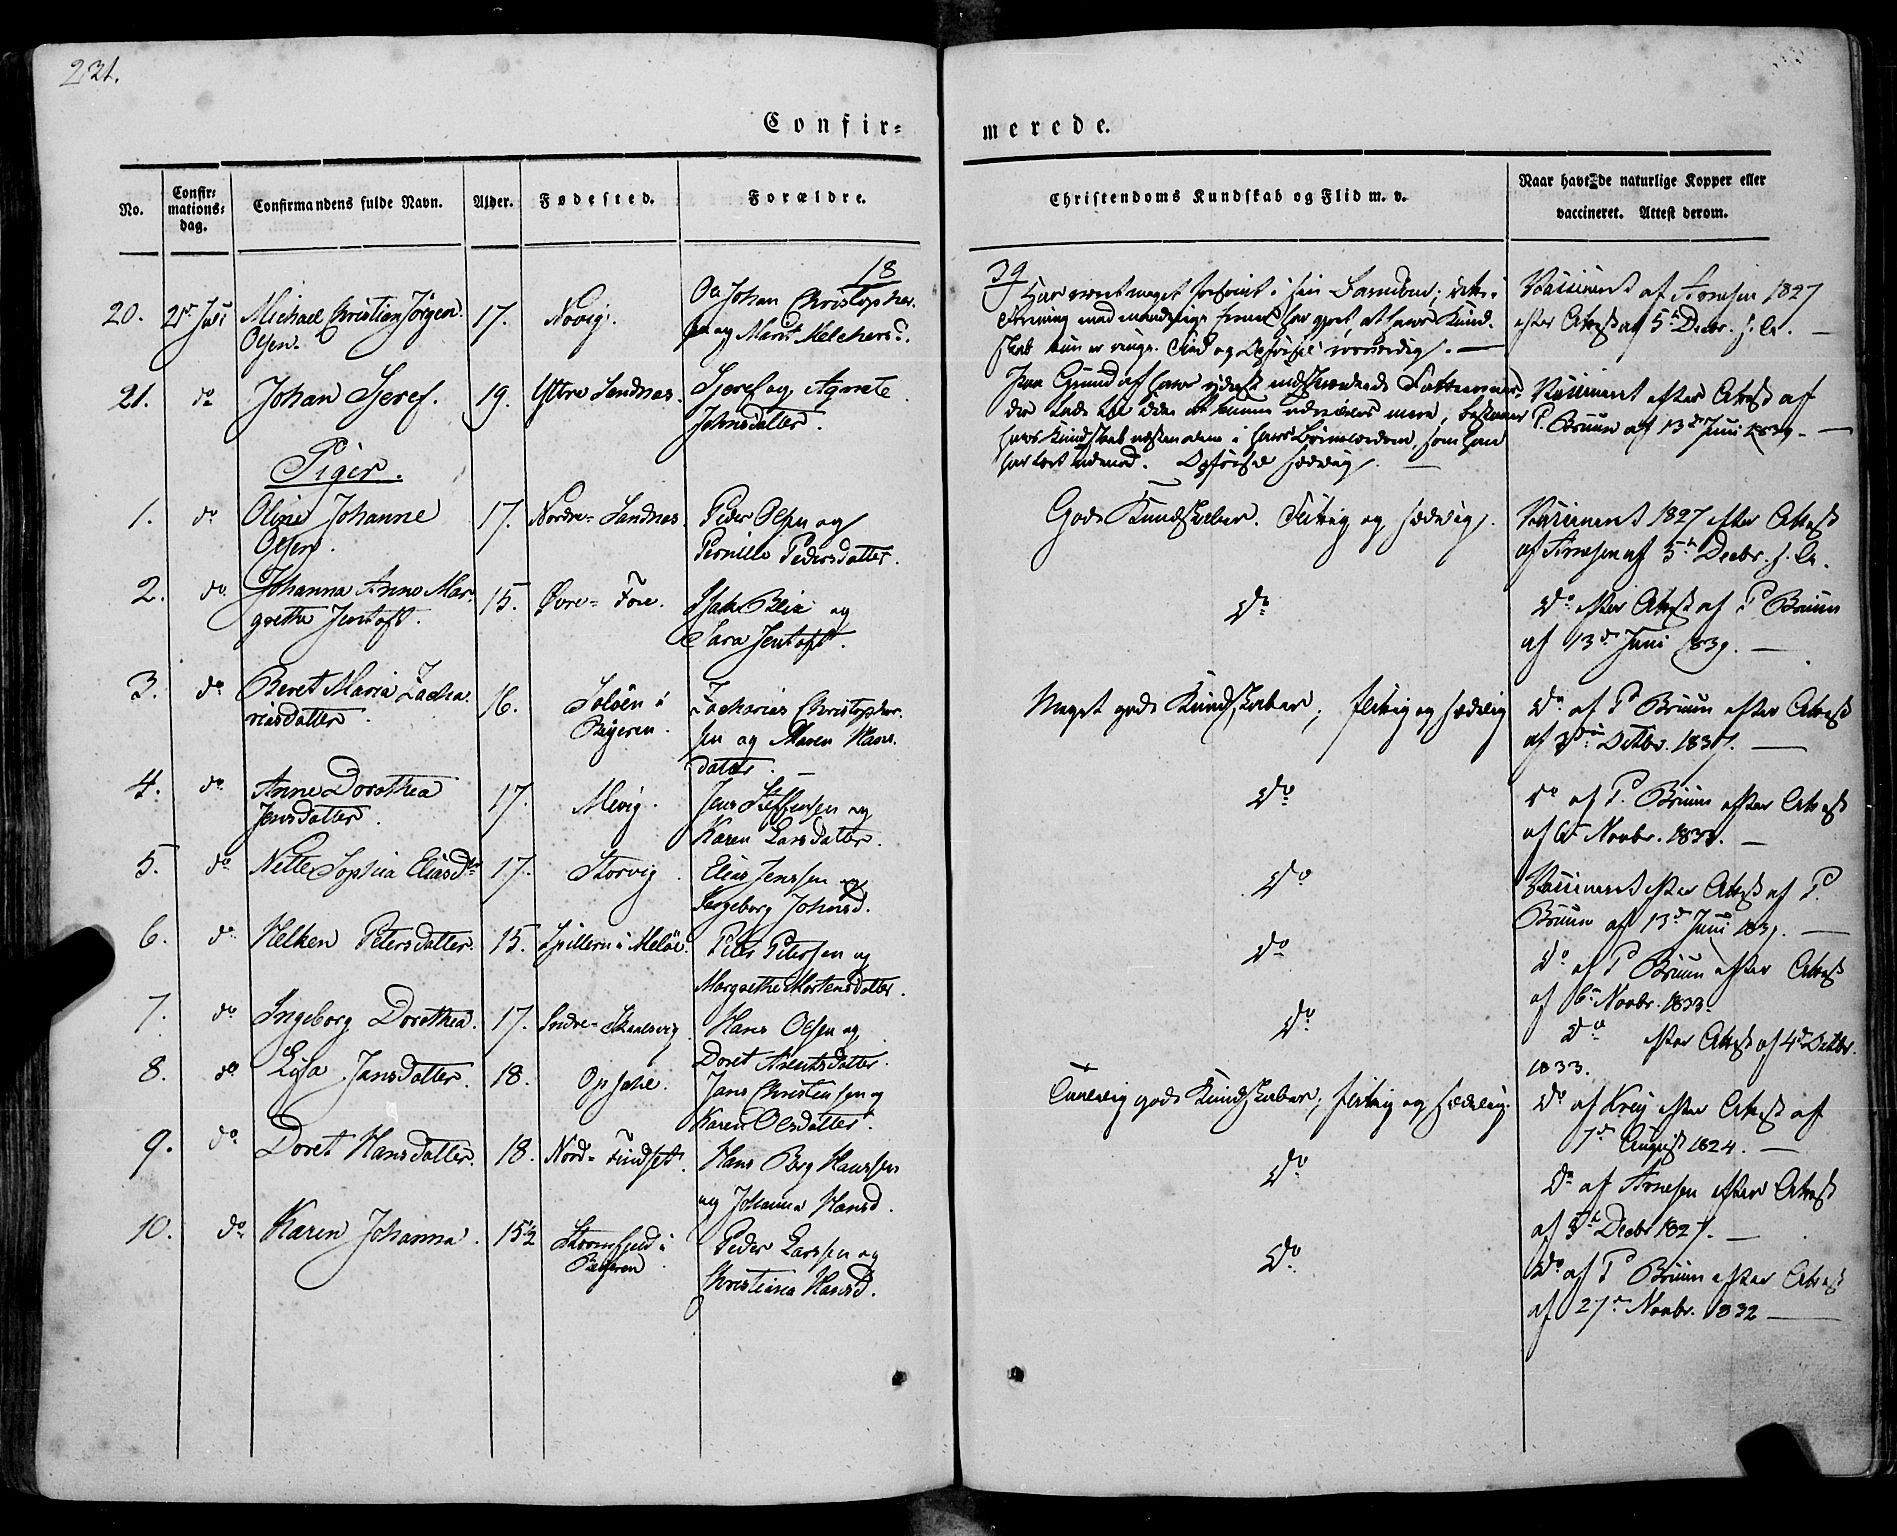 231.
Confir-
merede.
No.
Confir-
mations-
dag.
Confirmandens fulde Navn.
Alder.
Fødested.
Forældre.
Christendoms Kundskab og Flid m. v.
Naar havt de naturlige Kopper eller
vaccineret. Attest derom.
18
39
20. 21de Juli Michael Christian Jörgen 17. Novig. Ole Johan Christopher-
Olsen. sen og Marit Melchersd.
Har været meget forsömt i sin Barndom;
at hans Kund-
skab kun er ringe. Flid og Opförsel
Vaccineret af Arnesen 1827
efter Attest af 5te Decbr. s. A. —
21. do Johan Sjeref. 19. Yttre Sandnes. Sjeref og Agnete
Johnsdatter.
Paa Grund af hans
hans Kundskab næsten alene i hans Börnelærdom, som han
har lært udenad. Opförsel sædelig. —
Vaccineret efter Attest af
P. Bruun af 13de Juni 1839. —
Piger.
1. do Oline Johanne 17. Nordre-Sandnes. Peder Olsen og
Olsen. Pernille Pedersdatter.
Gode Kundskaber. Flittig og sædelig.
Vaccineret 1827 efter Attest
af Arnesen af 5te Decbr. s. A.
2. do Johanna Anna Mar- 15. Övre-Fore. Isak Blix og
grethe Jentoft. Sara Jentoft.
Do
Do efter Attest af P Bruun
af 13de Juni 1839. —
3. do Beret Maria Zacha- 16. Solöen i Zacharias Christopher-
riasdatter. Beyeren. sen og Maren Hans-
datter.
Meget gode Kundskaber; flittig og sædelig
Do af P Bruun efter Attest
af Octbr. 1837. —
4. do Anne Dorothea 17. Mevig. Jens Steffensen og
Jensdatter. Karen Larsdatter.
Do
Do af P. Bruun efter Attest
af 6te Novbr. 1833. —
5. do Nelle Sophia Eliasdr 17. Storvig. Elias Jenssen og
Ingeborg Johnsd.
Do
Vaccineret efter Attest af P.
Bruun af 13de Juni 1839. —
6. do Helken Petersdatter. 15. Spilleren i Melöe. Peter Petersen og
Margrethe Mortensdatter.
Do
Do af P Bruun efter Attest
af 6te Novbr. 1833.
7. do Ingeborg Dorothea. 17. Indre-Skaalsvig. Hans Olsen og
Doret Arentsdatter.
Do
Do efter Attest af 4de Octbr.
1833.
8. do Lisa Jansdatter. 18. Opsahl. Jans Christensen og
Karen Olsdatter.
Temmelig gode Kundskaber; flittig og sædelig.
Do af Krey efter Attest af
7de August 1824. —
9. do Doret Hansdatter. 18. Nord-Fundset. Hans Berg Hanssen
og Johanna Hansd.
Do
Do af Arnesen efter Attest
af 5te Decbr 1827. —
10. do Karen Johanna. 15½ Stormfjeld i Peder Larssen og
Beyeren. Christiana Hansd.
Do
Do af P Bruun efter Attest
af 27de Novbr. 1832 —